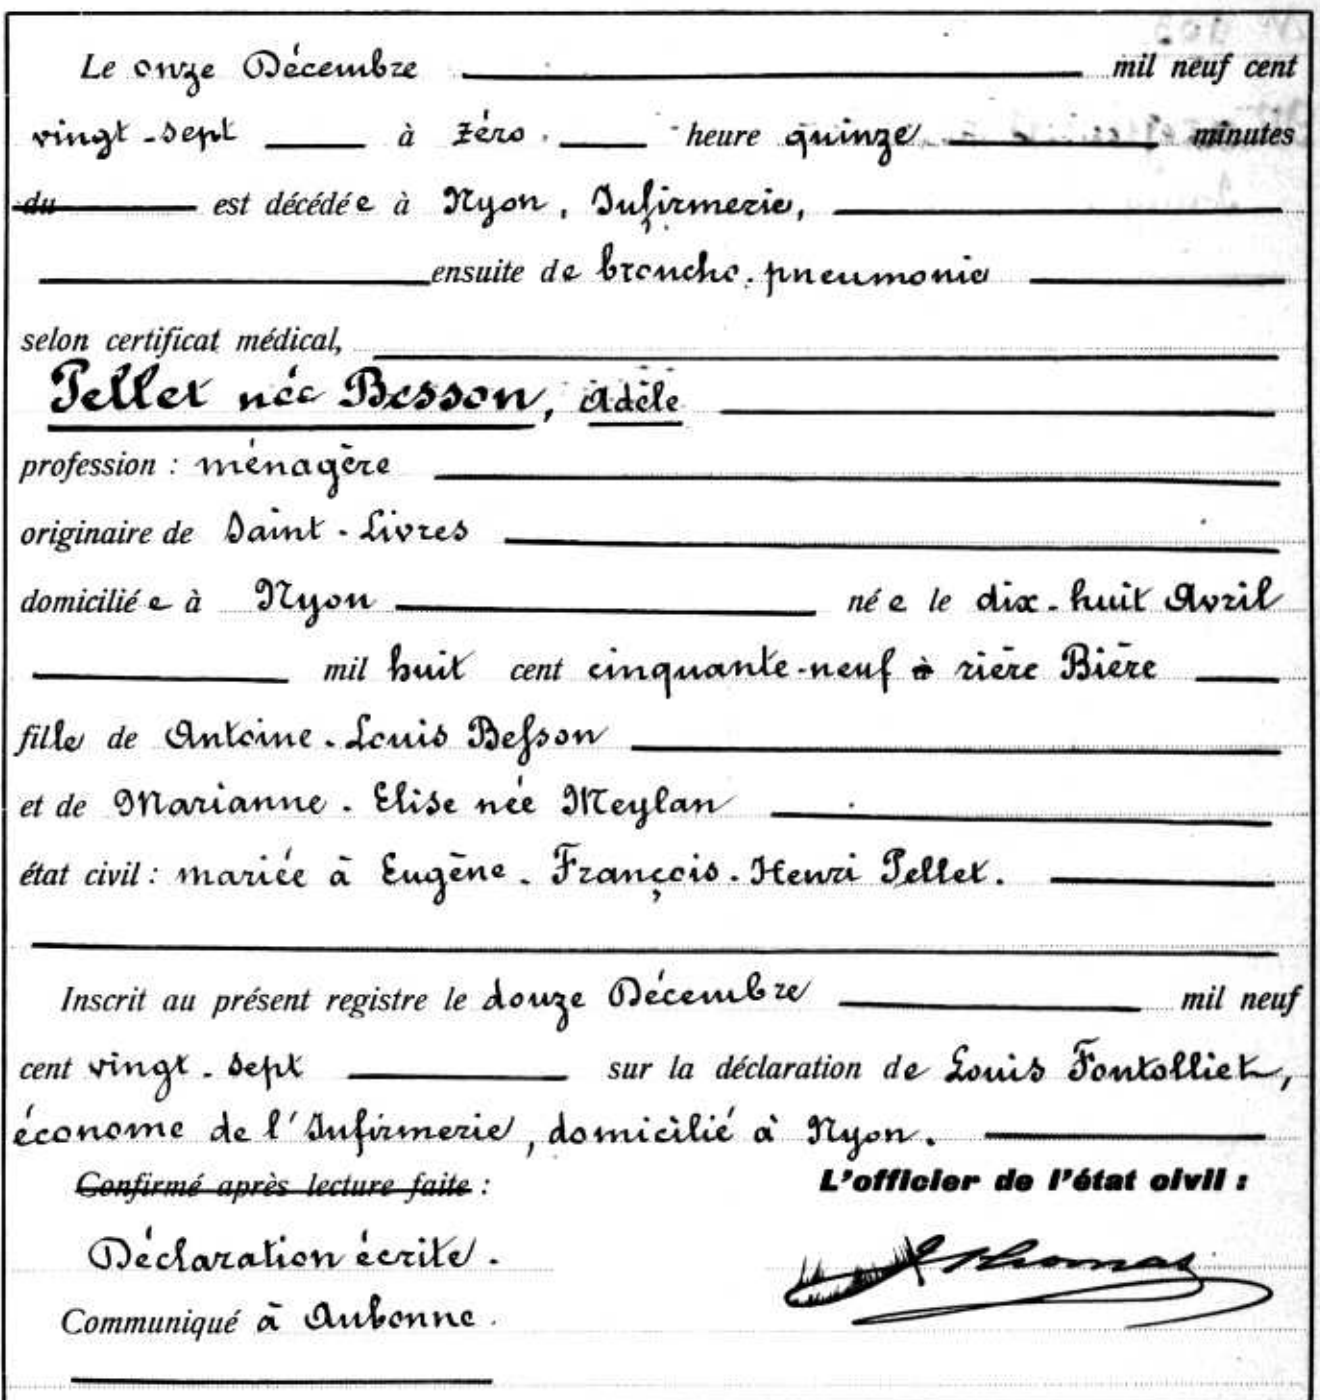 Le onze Décembre mil neuf cent
vingt-sept à zéro heure quinze minutes
du est décédée à Nyon, Infirmerie,
ensuite de broncho-pneumonie
selon certificat médical,
Pellet née Besson, Adèle
profession : ménagère
originaire de Saint-Livres
domiciliée à Nyon née le dix-huit Avril
mil huit cent cinquante-neuf à rière Bière
fille de Antoine-Louis Besson
et de Marianne-Elise née Meylan
état civil : mariée à Eugène-François-Henri Pellet.
Inscrit au présent registre le douze Décembre mil neuf
cent vingt-sept sur la déclaration de Louis Fontolliet,
économe de l'Infirmerie, domicilié à Nyon.
Confirmé après lecture faite : L'officier de l'état civil :
Déclaration écrite. Thomas
Communiqué à Aubonne.